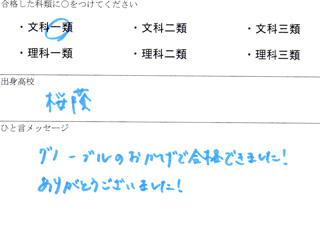 合格した科類に○をつけてください
・文科一類 ・文科二類 ・文科三類
・理科一類 ・理科二類 ・理科三類
出身高校
桜蔭
ひと言メッセージ
グノーブルのおかげで合格できました!
ありがとうございました!